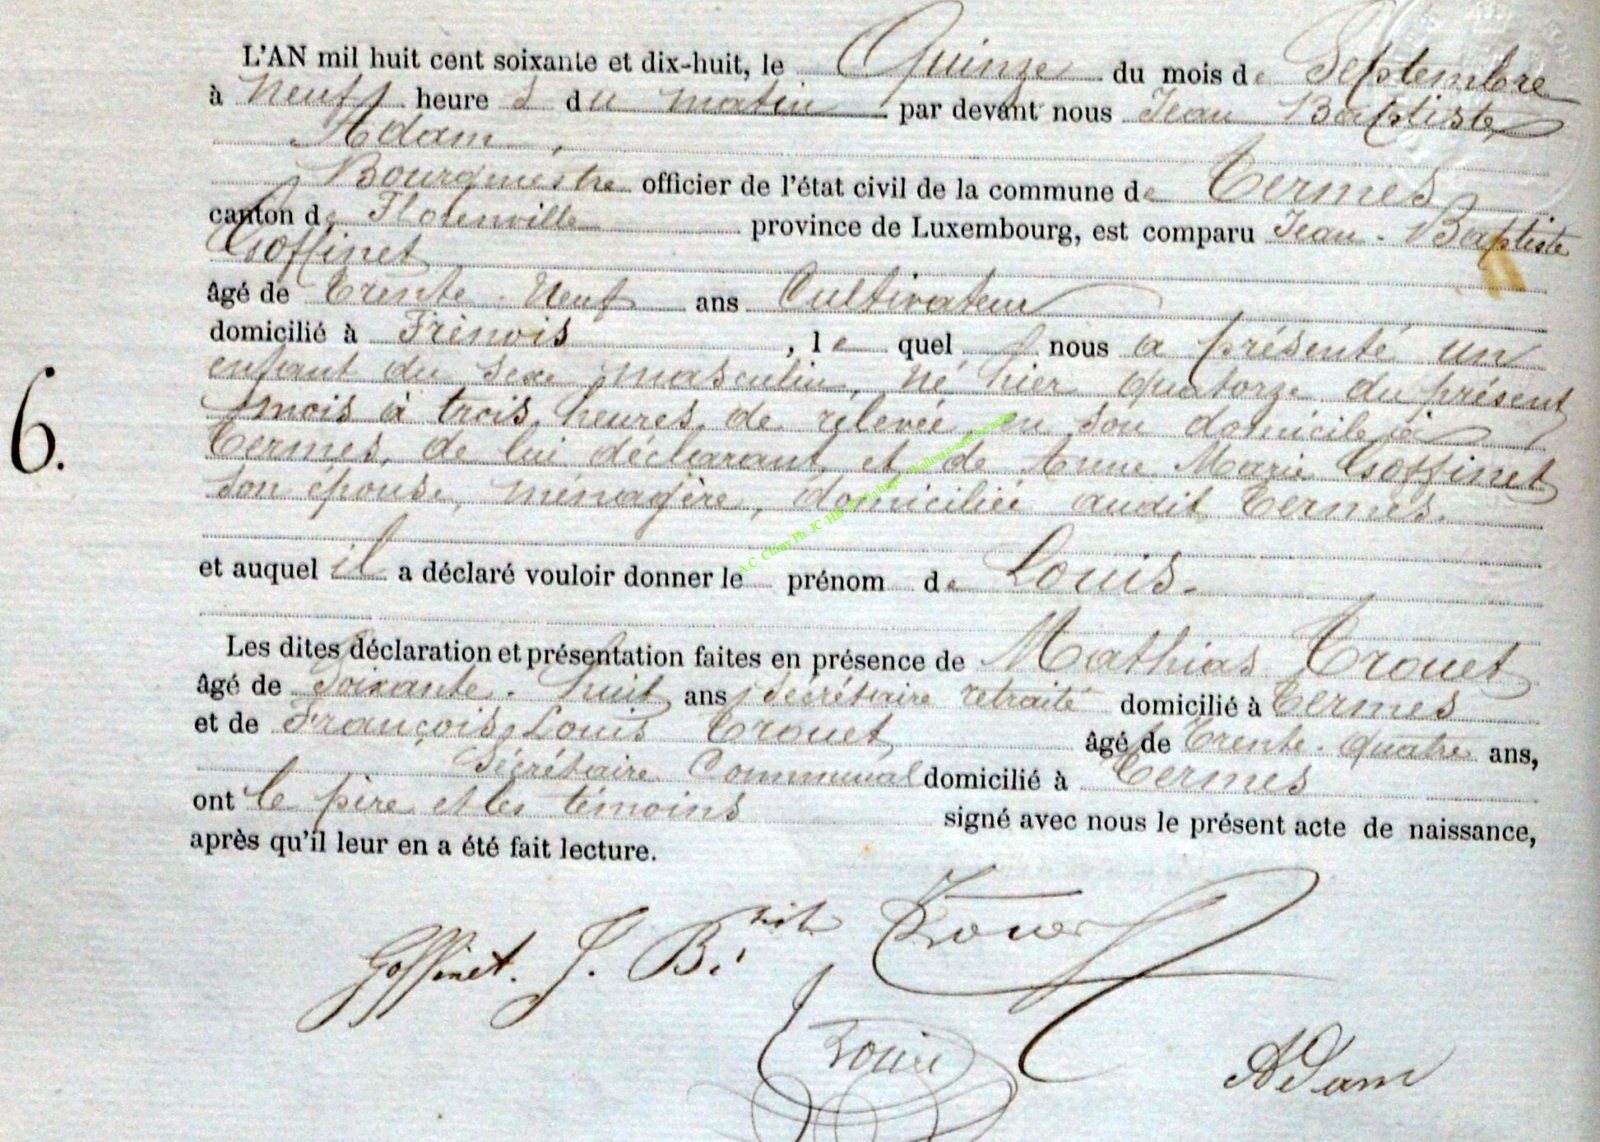 L'AN mil huit cent soixante et dix-huit, le Quinze du mois de Septembre
à Neuf heures du matin par devant nous Jean Baptiste
Adam,
Bourgmestre officier de l'état civil de la commune de Termes
canton de Florenville province de Luxembourg, est comparu Jean-Baptiste
Goffinet
âgé de Trente-Neuf ans Cultivateur
domicilié à Frénois, lequel nous a présenté un
enfant du sexe masculin, né hier quatorze du présent
mois à trois heures de relevée en son domicile à
Termes, de lui déclarant et de Anne Marie Goffinet
son épouse, ménagère, domiciliée audit Termes.
et auquel il a déclaré vouloir donner le prénom de Louis.
Les dites déclaration et présentation faites en présence de Mathias Trouet
âgé de Soixante-huit ans, Secrétaire retraité domicilié à Termes
et de François Louis Trouet âgé de Trente-quatre ans,
Sécrétaire Communal domicilié à Termes
ont le père et les témoins signé avec nous le présent acte de naissance,
après qu'il leur en a été fait lecture.
6.
Goffinet. J. B. Trouet
Adam